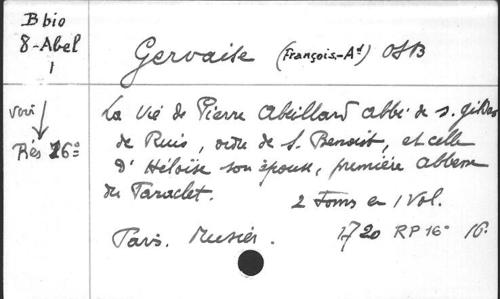 B bio
8-Abel
1
Gervaise (François-Ad) OSB
voir
Rés 16°
La Vie de Pierre Abeillard abbé de S. Gildas
de Ruis, ordre de S. Benoist, et celle
d'Héloïse son épouse, première abbesse
du Paraclet.
2 Toms en 1 Vol.
Paris. Musier. 1720 RP 16° 16.